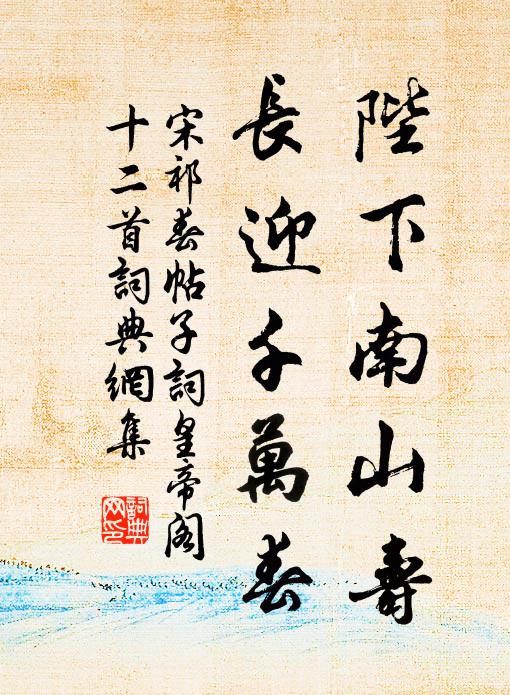 陛下南山壽
長迎千萬春
宋祁春帖子詞皇帝閣
十二首詞典網集
詞典网印